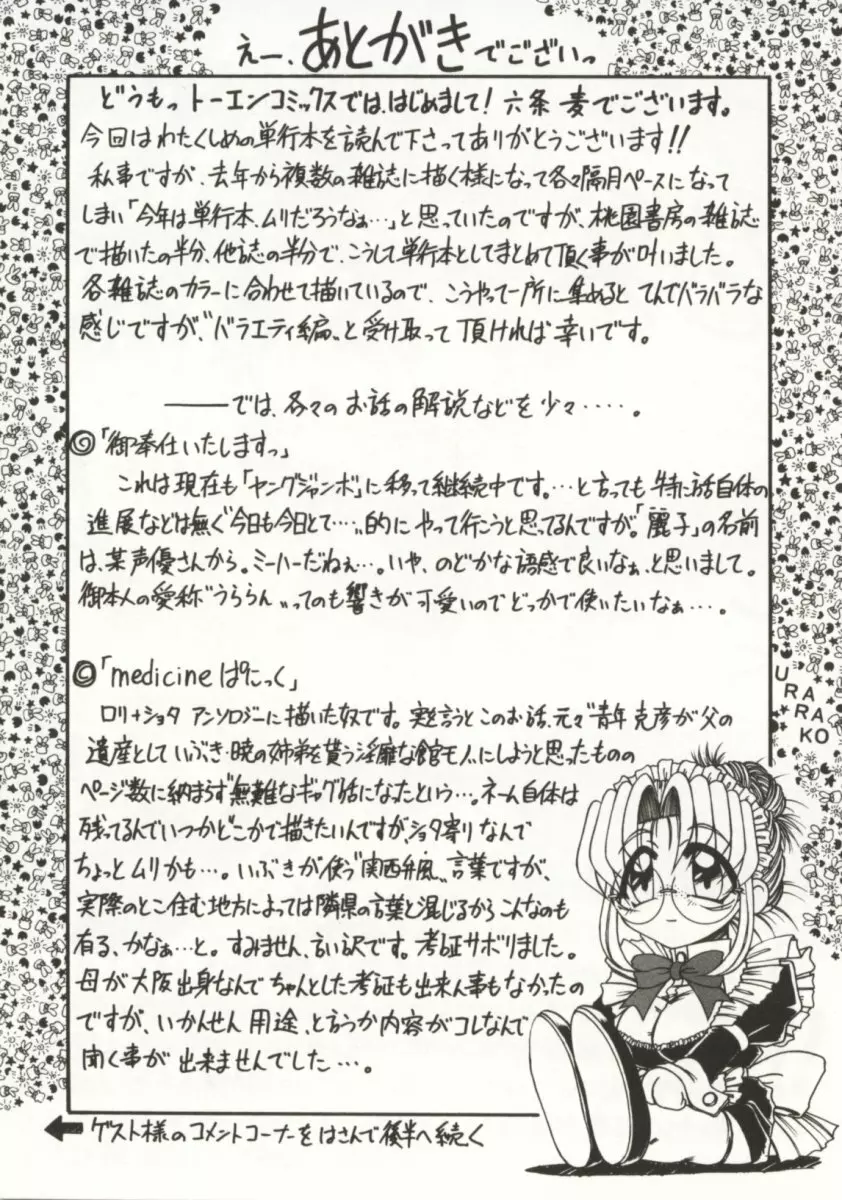 えー、あとがきでございっ
どうもっ トーエンコミックスでは、はじめまして！六条 麦でございます。
今回はわたくしめの単行本を読んで下さってありがとうございます!!
私事ですが、去年から複数の雑誌に描く様になって各々隔月ペースになって
しまい「今年は単行本、ムリだろうなぁ…」と思っていたのですが、桃園書房の雑誌
で描いたの半分、他誌の半分で、こうして単行本としてまとめて頂く事が叶いました。
各雑誌のカラーに合わせて描いているので、こうやって一所に集めると てんでバラバラな
感じですが、“バラエティ編„と受け取って頂ければ幸いです。
――では、各々のお話の解説などを少々‥‥。
◎「御奉仕いたしますっ」
これは現在も「ヤングジャンボ」に移って継続中です。…と言っても特に話自体の
進展などは無く“今日も今日とて…„的にやって行こうと思ってるんですが。「麗子」の名前
は、某声優さんから。ミーハーだねぇ…。いや、のどかな語感で良いなぁ、と思いまして。
御本人の愛称“うららん„ってのも響きが可愛いのでどっかで使いたいなぁ…。
◎「medicineぱにっく」
ロリ+ショタ アンソロジーに描いた奴です。実を言うとこのお話、元々“青年 克彦が父の
遺産として いぶき・暁の姉弟を貰う淫靡な館モノ„にしようと思ったものの
ページ数に納まらず“無難なギャグ話になったという…。ネーム自体は
残ってるんでいつかどこかで描きたいんですが、ショタ寄りなんで
ちょっとムリかも…。いぶきが使う“関西弁風„言葉ですが、
実際のとこ住む地方によっては隣県の言葉と混じるからこんなのも
有る、かなぁ…と。すみません、言い訳です。考証サボりました。
母が大阪出身なんでちゃんとした考証も出来ん事もなかったの
ですが、いかんせん用途、と言うか内容がコレなんで
聞く事が出来ませんでした…。
URARAKO
← ゲスト様のコメントコーナーをはさんで後半へ続く